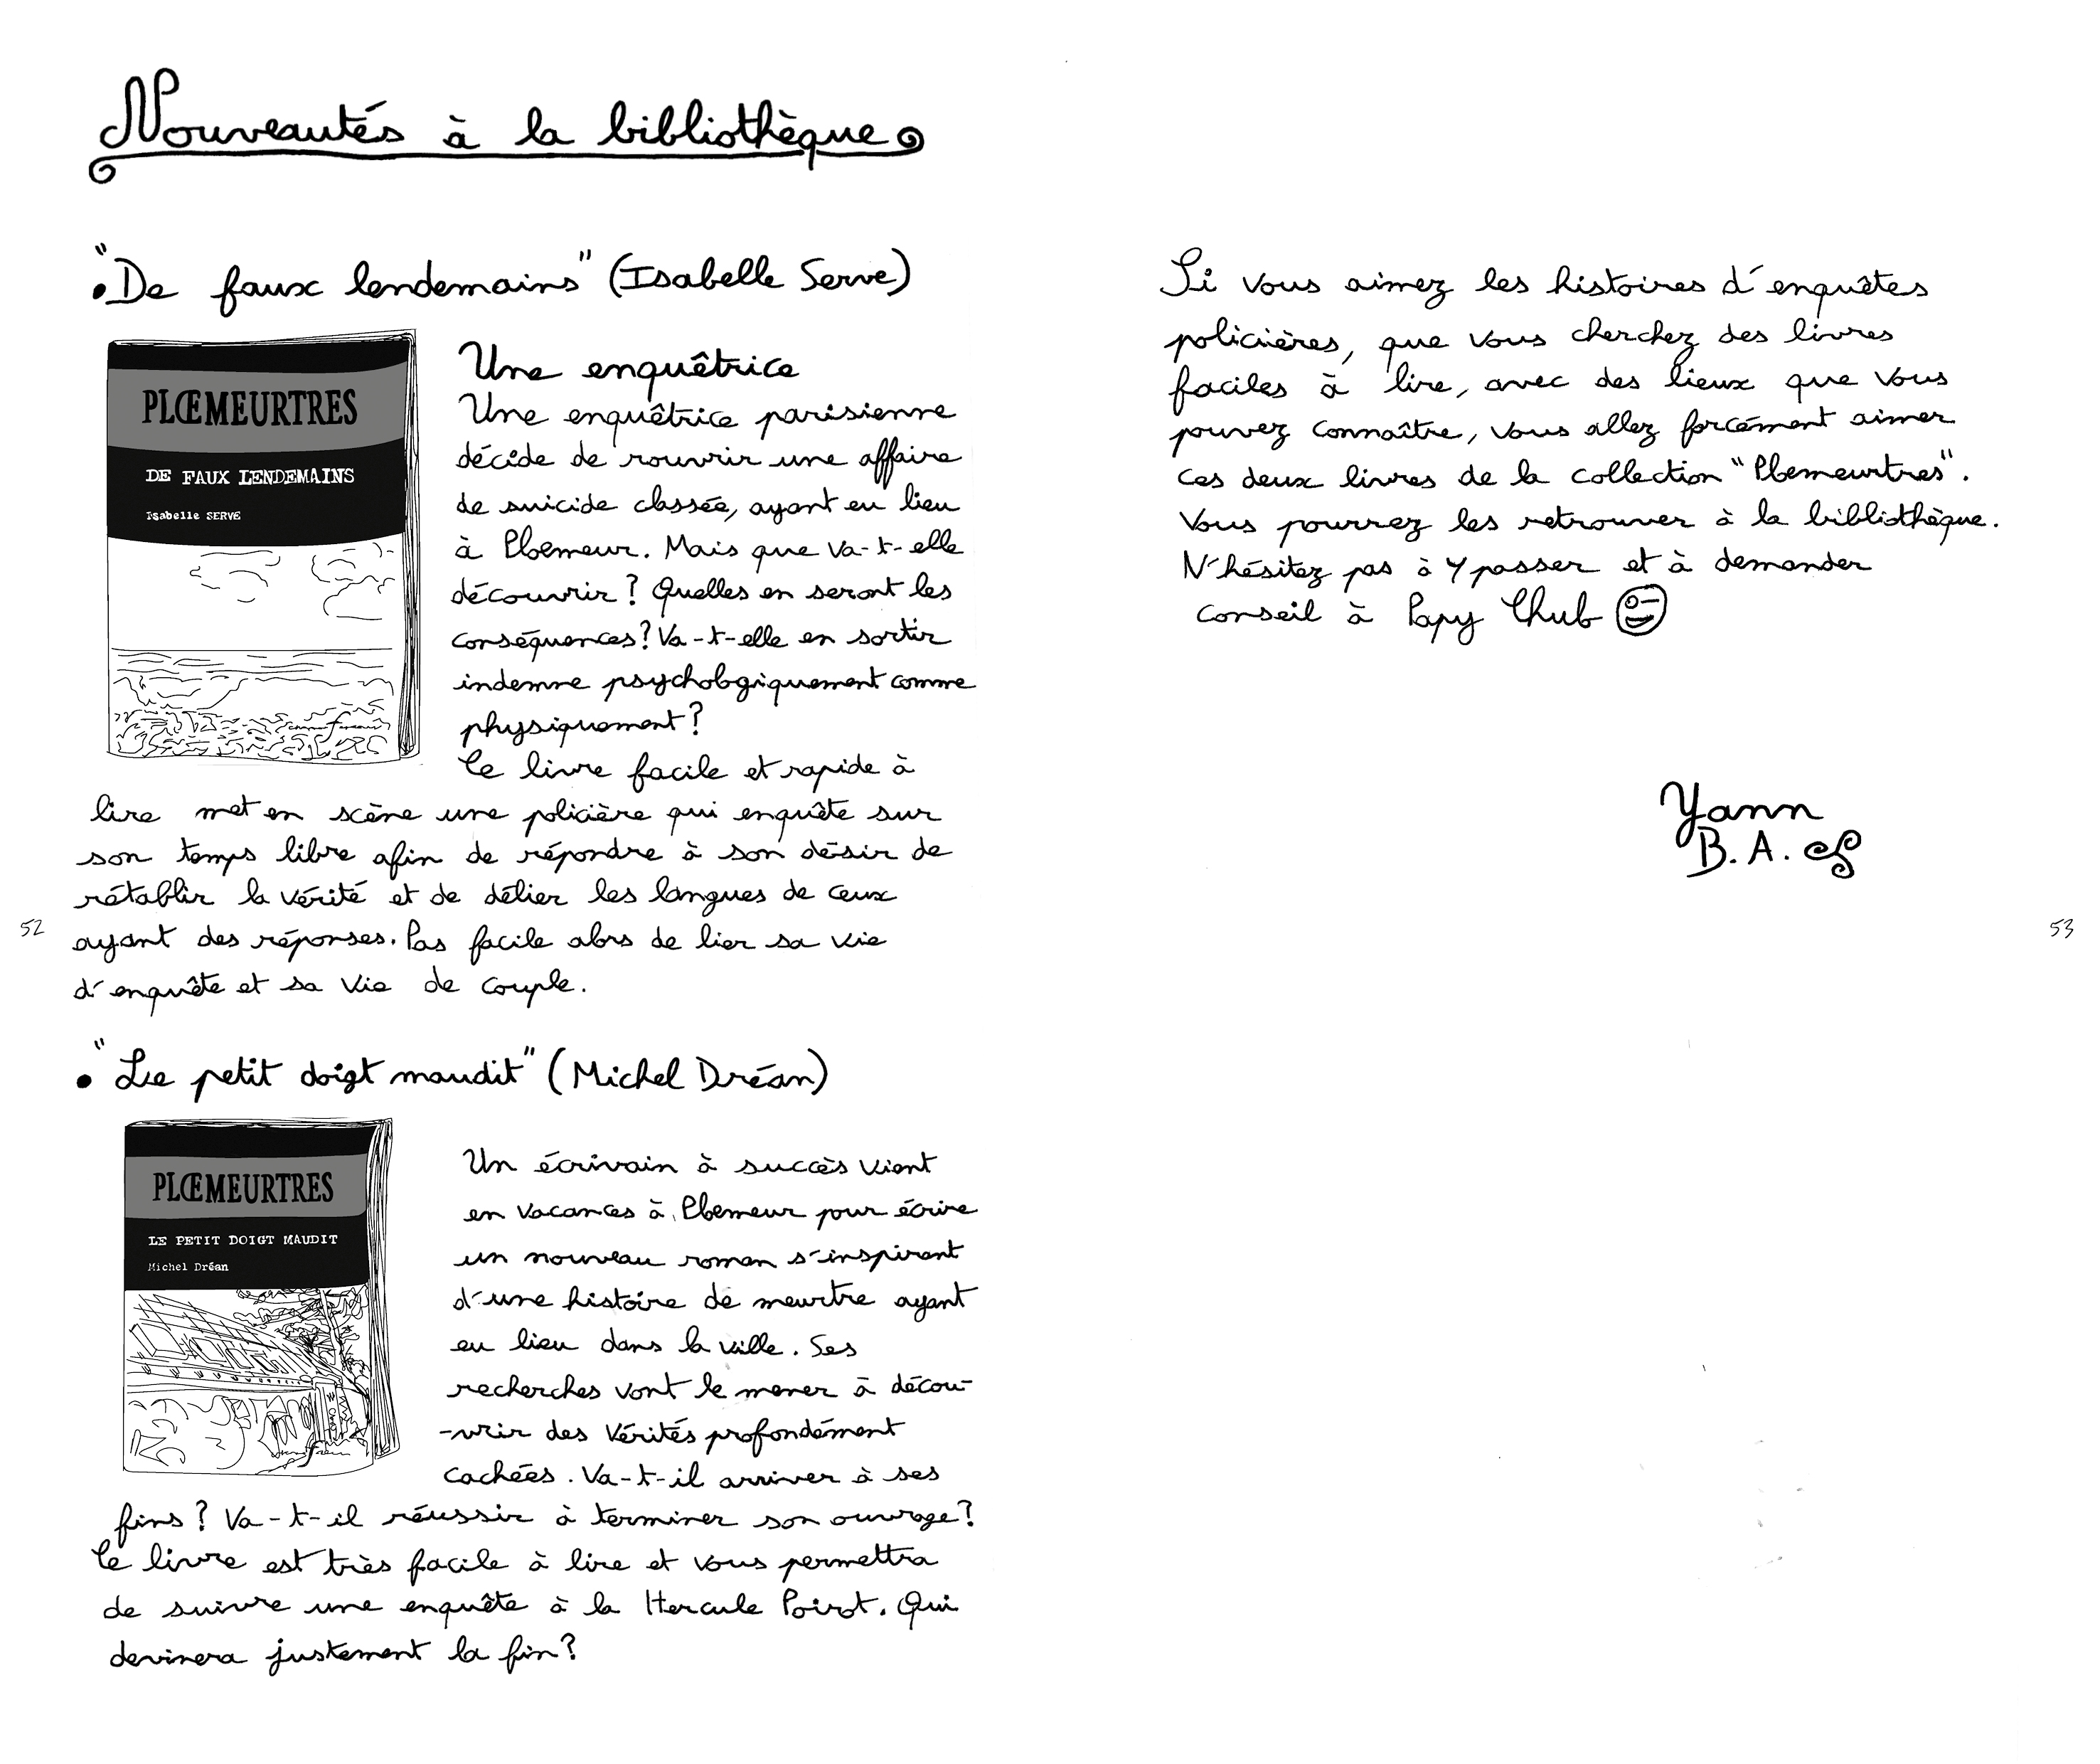 Nouveautés à la bibliothèque
• "De faux lendemains" (Isabelle Serve)
PLŒMEURTRES
DE FAUX LENDEMAINS
Isabelle SERVE
Une enquêtrice
Une enquêtrice parisienne
décide de rouvrir une affaire
de suicide classée, ayant eu lieu
à Ploemeur. Mais que va-t-elle
découvrir ? Quelles en seront les
conséquences ? Va-t-elle en sortir
indemne psychologiquement comme
physiquement ?
Ce livre facile et rapide à
lire met en scène une policière qui enquête sur
son temps libre afin de répondre à son désir de
rétablir la vérité et de délier les langues de ceux
ayant des réponses. Pas facile alors de lier sa vie
d'enquête et sa vie de couple.
52
• "Le petit doigt maudit" (Michel Dréan)
PLŒMEURTRES
LE PETIT DOIGT MAUDIT
Michel Dréan
Un écrivain à succès vient
en vacances à Ploemeur pour écrire
un nouveau roman s'inspirant
d'une histoire de meurtre ayant
eu lieu dans la ville. Ses
recherches vont le mener à décou-
-vrir des vérités profondément
cachées. Va-t-il arriver à ses
fins ? Va-t-il réussir à terminer son ouvrage ?
Ce livre est très facile à lire et vous permettra
de suivre une enquête à la Hercule Poirot. Qui
devinera justement la fin ?
Si vous aimez les histoires d'enquêtes
policières, que vous cherchez des livres
faciles à lire, avec des lieux que vous
pouvez connaître, vous allez forcément aimer
ces deux livres de la collection "Ploemeurtres".
Vous pourrez les retrouver à la bibliothèque.
N'hésitez pas à y passer et à demander
conseil à Papy Chub
Yann
B. A.
53